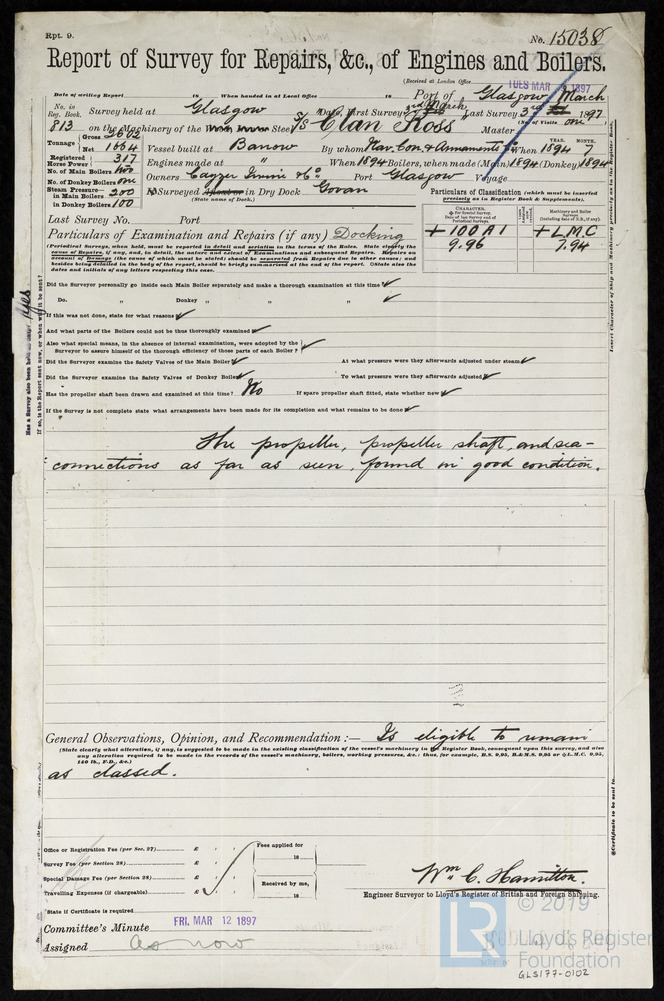 Rpt. 9.
No. 15038
Report of Survey for Repairs, &c., of Engines and Boilers.
(Received at London Office
TUES MAR 1897
Date of writing Report 18 When handed in at Local Office 18 Port of Glasgow March
No. in Reg. Book. Survey held at Glasgow Date, First Survey 3rd March Last Survey 3rd 1897
(No. of Visits one)
813 on the Machinery of the Steel S/S Clan Ross Master
Tonnage Gross 2602
Net 1664
Vessel built at Barrow By whom Nav. Con. & Armaments Co When 1894 YEAR. MONTH. 7
Registered Horse Power 317 Engines made at " When 1894 Boilers, when made (Main) 1894 (Donkey) 1894
No. of Main Boilers two
No. of Donkey Boilers one
Owners Cayzer Irvine & Co Port Glasgow Voyage
Steam Pressure in Main Boilers 200
in Donkey Boilers 100
If Surveyed Afloat or in Dry Dock Govan
(State name of Dock.)
Particulars of Classification (which must be inserted precisely as in Register Book & Supplements).
Last Survey No. Port
Particulars of Examination and Repairs (if any) Docking
CHARACTER.
+ 100 A1
9.96
+ L.M.C
7.94
(Periodical Surveys, when held, must be reported in detail and seriatim in the terms of the Rules. State clearly the
cause of Repairs, if any, and, in detail, the nature and extent of Examinations and subsequent Repairs. Repairs on
account of Damage (the cause of which must be stated) should be separated from Repairs due to other causes; and
besides being detailed in the body of the report, should be briefly summarized at the end of the report. State also the
dates and initials of any letters respecting this case.
Did the Surveyor personally go inside each Main Boiler separately and make a thorough examination at this time ✓
Do. " Donkey " " " ✓
If this was not done, state for what reasons ✓
And what parts of the Boilers could not be thus thoroughly examined ✓
Also what special means, in the absence of internal examination, were adopted by the
Surveyor to assure himself of the thorough efficiency of those parts of each Boiler? ✓
Did the Surveyor examine the Safety Valves of the Main Boiler ✓ At what pressure were they afterwards adjusted under steam ✓
Did the Surveyor examine the Safety Valves of Donkey Boiler ✓ To what pressure were they afterwards adjusted ✓
Has the propeller shaft been drawn and examined at this time? No If spare propeller shaft fitted, state whether new ✓
If the Survey is not complete state what arrangements have been made for its completion and what remains to be done ✓
The propeller, propeller shaft, and sea-
connections as far as seen, found in good condition.
General Observations, Opinion, and Recommendation :— Is eligible to remain
(State clearly what alteration, if any, is suggested to be made in the existing classification of the vessel's machinery in the Register Book, consequent upon this survey, and also
any alteration required to be made in the records of the vessel's machinery, boilers, working pressures, &c.: thus, for example, B.S. 9,95, B.&M.S. 9,95 or L.M.C. 9,95,
140 lb., F.D., &c.)
as classed.
Office or Registration Fee (per Sec. 27) £ : :
Survey Fee (per Section 28) £ : :
Special Damage Fee (per Section 28) £ : :
Travelling Expenses (if chargeable) £ : :
Fees applied for
18
Received by me,
18
Wm. C. Hamilton.
Engineer Surveyor to Lloyd's Register of British and Foreign Shipping.
State if Certificate is required
Committee's Minute FRI. MAR 12 1897
Assigned as now
Has a Survey also been Yes
If so, is the Report sent now, or when will it be sent?
Certificate to be sent to
LR
© 2019
Lloyd's Register
Foundation
GLS177-0102